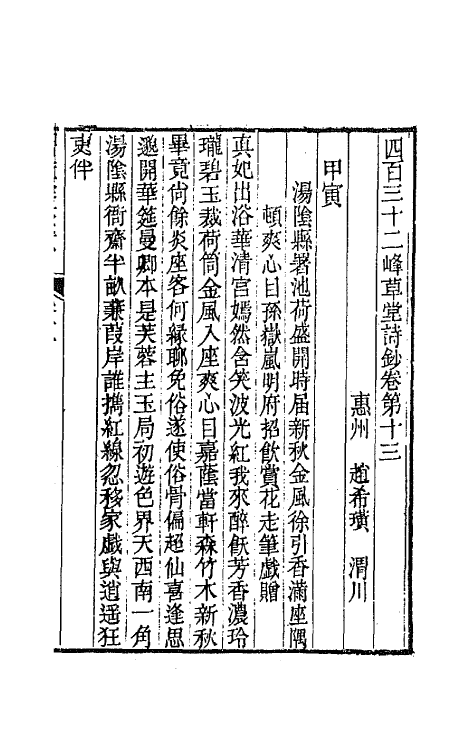 四百三十二峰草堂詩鈔卷第十三
惠州　趙希璜　渭川
甲寅
湯陰縣署池荷盛開時届新秋金風徐引香滿座隅
頓爽心目孫嶽嵐明府招飲賞花走筆戲贈
真妃出浴華清宮嫣然含笑波光紅我來醉飫芳香濃玲
瓏碧玉裁荷筒金風入座爽心目嘉蔭當軒森竹木新秋
畢竟尚餘炎座客何緣聊免俗遂使俗骨偏超仙喜逢思
邈開華筵曼卿本是芙蓉主玉局初遊色界天西南一角
湯陰縣衙齋半畝蒹葭岸誰攜紅線忽移家戲與逍遥狂
吏伴